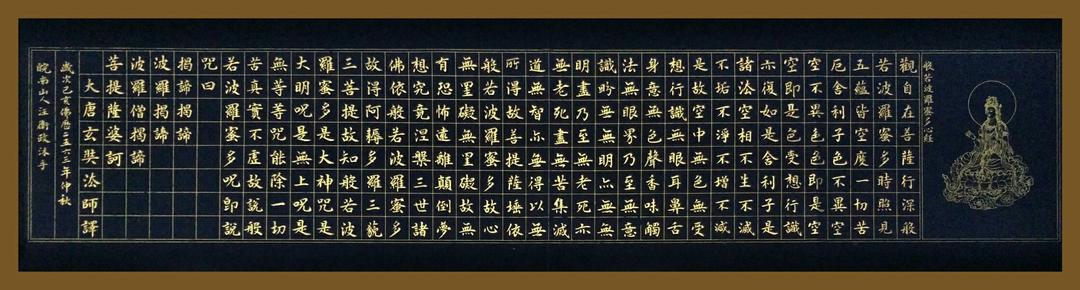 般若波羅蜜多心經
觀自在菩薩行深般
若波羅蜜多時照見
五蘊皆空度一切苦
厄舍利子色不異空
空不異色色即是空
空即是色受想行識
亦復如是舍利子是
諸法空相不生不滅
不垢不淨不增不減
是故空中無色無受
想行識無眼耳鼻舌
身意無色聲香味觸
法無眼界乃至無意
識界無無明亦無無
明盡乃至無老死亦
無老死盡無苦集滅
道無智亦無得以無
所得故菩提薩埵依
般若波羅蜜多故心
無罣礙無罣礙故無
有恐怖遠離顛倒夢
想究竟涅槃三世諸
佛依般若波羅蜜多
故得阿耨多羅三藐
三菩提故知般若波
羅蜜多是大神呪是
大明呪是無上呪是
無等等呪能除一切
苦真實不虛故說般
若波羅蜜多呪即說
呪曰
揭諦揭諦
波羅揭諦
波羅僧揭諦
菩提薩婆訶
大唐玄奘法師譯
歲次己亥佛曆二五六三年仲秋
皖南山人汪衛政沐手